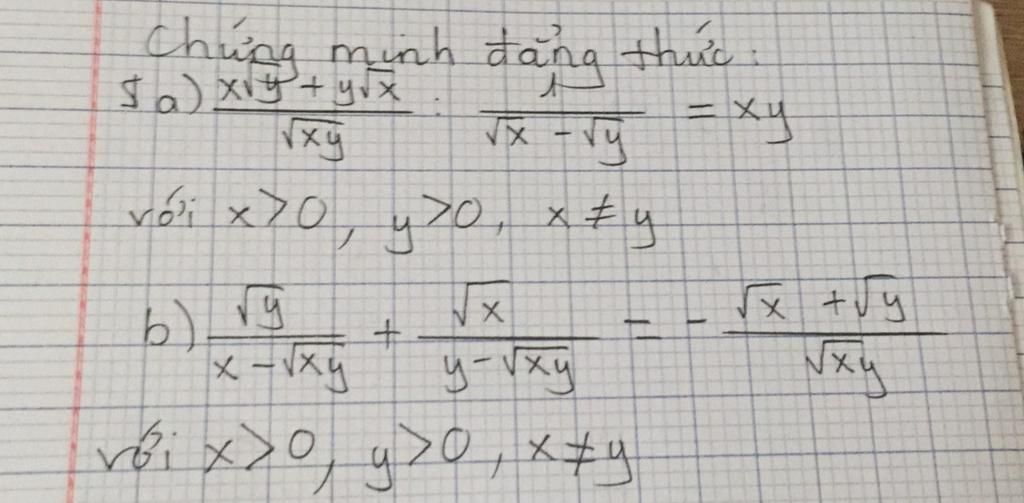 Chứng minh đẳng thức:
5a) \frac{x\sqrt{y} + y\sqrt{x}}{\sqrt{xy}} : \frac{1}{\sqrt{x} - \sqrt{y}} = xy
với x > 0, y > 0, x ≠ y
b) \frac{\sqrt{y}}{x - \sqrt{xy}} + \frac{\sqrt{x}}{y - \sqrt{xy}} = - \frac{\sqrt{x} + \sqrt{y}}{\sqrt{xy}}
với x > 0, y > 0, x ≠ y